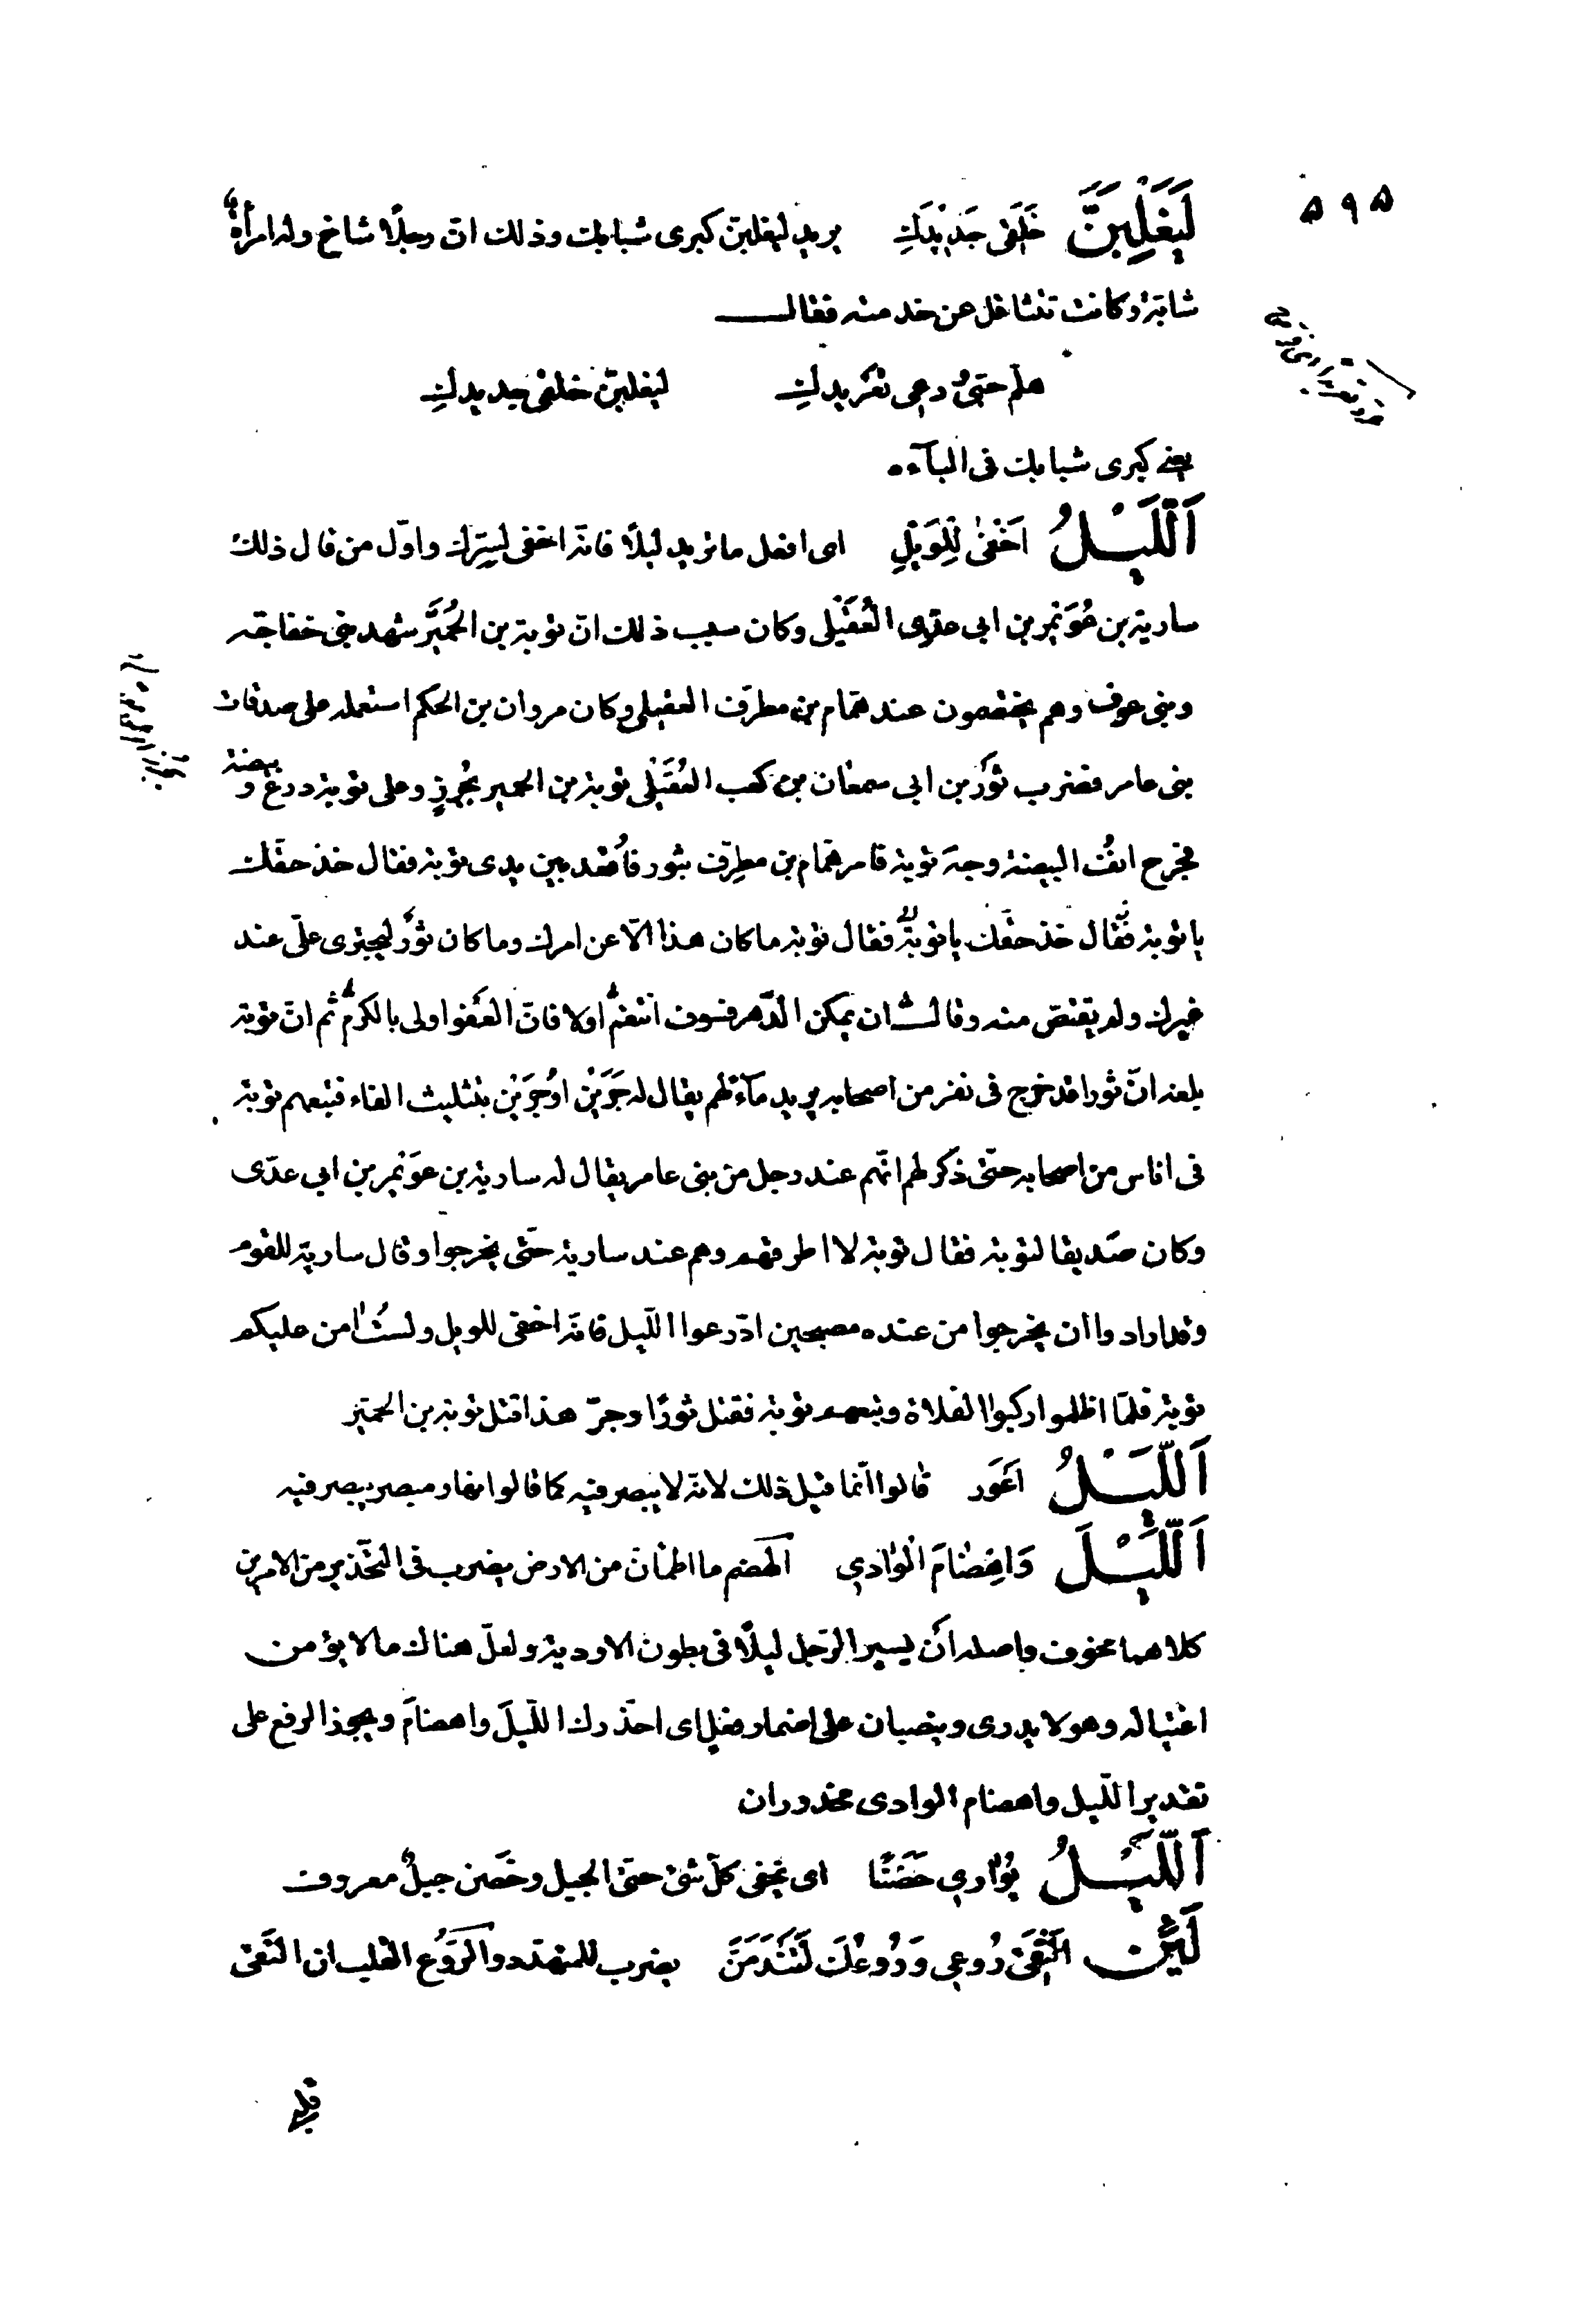 ٥٩٥
لَيَغْلِبَنَّ خَلَقي جَدِيْدَكِ يريد ليغلبنّ كبرى شبابك وذلك انّ رجلًا شاخ وله امرأةٌ
شابّة وكانت تتشاغل عن خدمته فقال
هلم حتّى دعى تغريدكِ ليغلبنّ خلقى جديدكِ
يعنى كبرى شبابك فى الباءة
اَللَّيْلُ اَخْفىٰ لِلْوَيْلِ اى افعل ما تريد ليلًا فانّه اخفى لسِرّك واوّل من قال ذلك
سارية بن عُوَيْمر بن ابى عدى العُقَيْلى وكان سبب ذلك انّ توبة بن الحُمَيَّر شهد بنى خفاجة
وبنى عوف وهم يختصمون عند همّام بن مطرّف العقيلى وكان مروان بن الحكم استعمله على صدقات
بنى عامر فضرب ثَوْر بن ابى سمعان بن كعب العُقَيْلى توبة بن الحمير بجُرزٍ وعلى توبة درع وبيضة
فجرح انفُ البيضة وجهَ توبة فامر همّام بن مطرّف بثور فأقعد بين يدى توبة فقال خذ حقّك
يا توبة فقال خذ حقّك يا توبة فقال توبة ما كان هذا الّا عن امرك وما كان ثورٌ ليجترى علىّ عند
غيرك ولم يقتصّ منه وقال شان يمكن الدّهر فسوف انتقمْ اولا فانّ العفو اولى بالكرمْ ثم انّ توبة
بلغه انّ ثورا قد خرج فى نفر من اصحابه يريد مآءً لهم يقال له جَوَيْن اوجُوَيْن بتثليث الفاء فتبعهم توبة
فى اناس من اصحابه حتّى ذكر لهم انّهم عند رجل من بنى عامر يقال له سارية بن عوَيْمر بن ابى عدّى
وكان صديقا لتوبة فقال توبة لا اطرقهم وهم عند سارية حتّى يخرجوا وقال سارية للقوم
وقد ارادوا ان يخرجوا من عنده مصبحين ادّرعوا الّليل فانّه اخفى للويل ولستُ امن عليكم
توبة فلمّا اظلموا ركبوا الفلاة وتبعهم توبة فقتل ثورًا وجرّ هذا قتل توبة بن الحميّر
اَللَّيْلُ اَعْوَر قالوا انّما قيل ذلك لانّه لا يبصر فيه كما قالوا نهار مبصر يبصر فيه
اَللَّيْلَ وَاهْضٰامَ الْوٰادي الهضم ما اطمانّ من الارض يضرب فى التّحذير من الامرين
كلاهما مخوف واصله أن يسير الرّجل ليلًا فى بطون الاودية ولعلّ هناك مالا يؤمن
اغتياله وهو لا يدرى وينصبان على اضمار فعل اى احذّرك اللّيلَ واهضامَ ويجوز الرفع على
تقدير اللّيل واهضام الوادى محذوران
اَللَّيْلُ يُوٰاري حَضَنًا اى يخفى كلّ شئ حتّى الجبل وحَضن جبلٌ معروف
لَئِن الْتَقىٰ رُوعي وَرُوعُكَ لَتَنْدَمَنَّ يضرب للمتهدّد والرَّوُع القلب ان التَقى